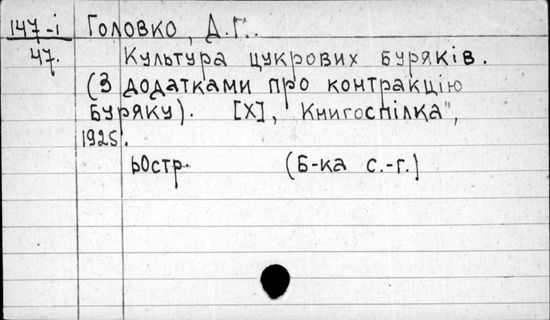 147-і Головко, Д.Г..
47. Культура цукрових буряків.
(З додатками про контракцію
буряку). [Х], Книгоспілка",
1925.
60стр. (Б-ка с.-г.]